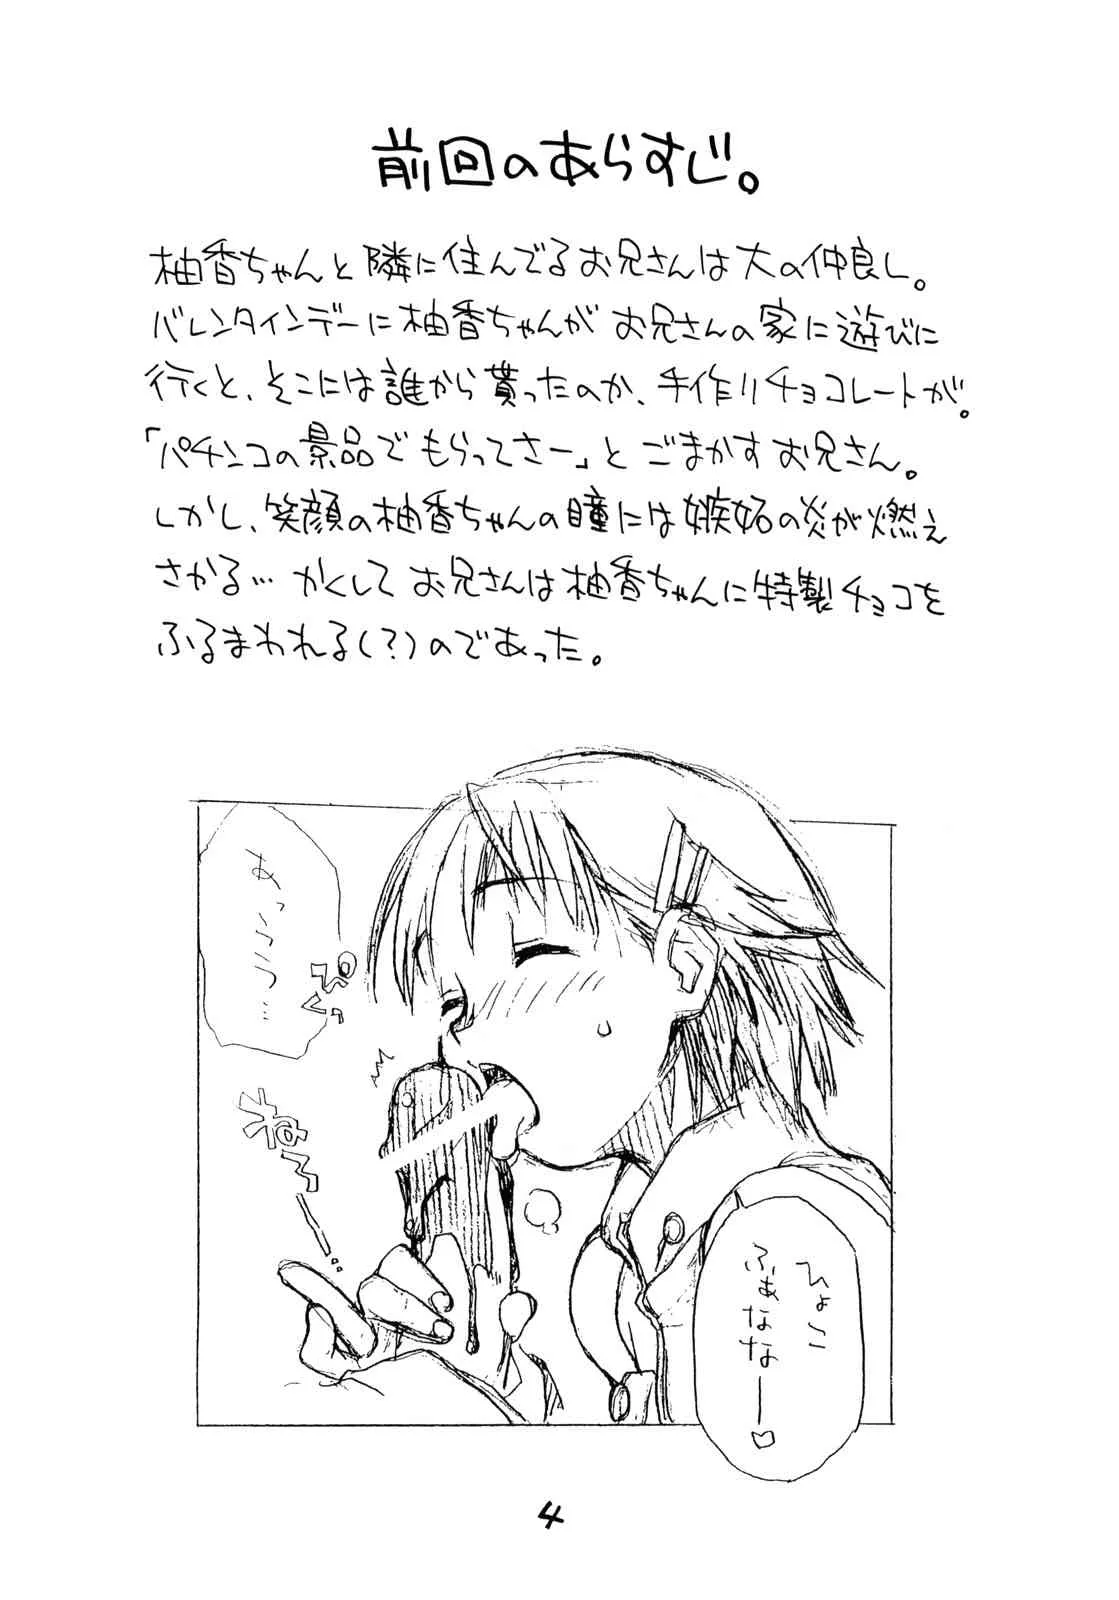 前回のあらすじ。
柚香ちゃんと隣に住んでるお兄さんは大の仲良し。
バレンタインデーに柚香ちゃんがお兄さんの家に遊びに
行くと、そこには誰から貰ったのか、手作りチョコレートが。
「パチンコの景品でもらってさー」とごまかすお兄さん。
しかし、笑顔の柚香ちゃんの瞳には嫉妬の炎が燃え
さかる… かくしてお兄さんは柚香ちゃんに特製チョコを
ふるまわれる(?)のであった。
あっううっ…
ぷくっ
ひょこ
ふぁなな―♡
4